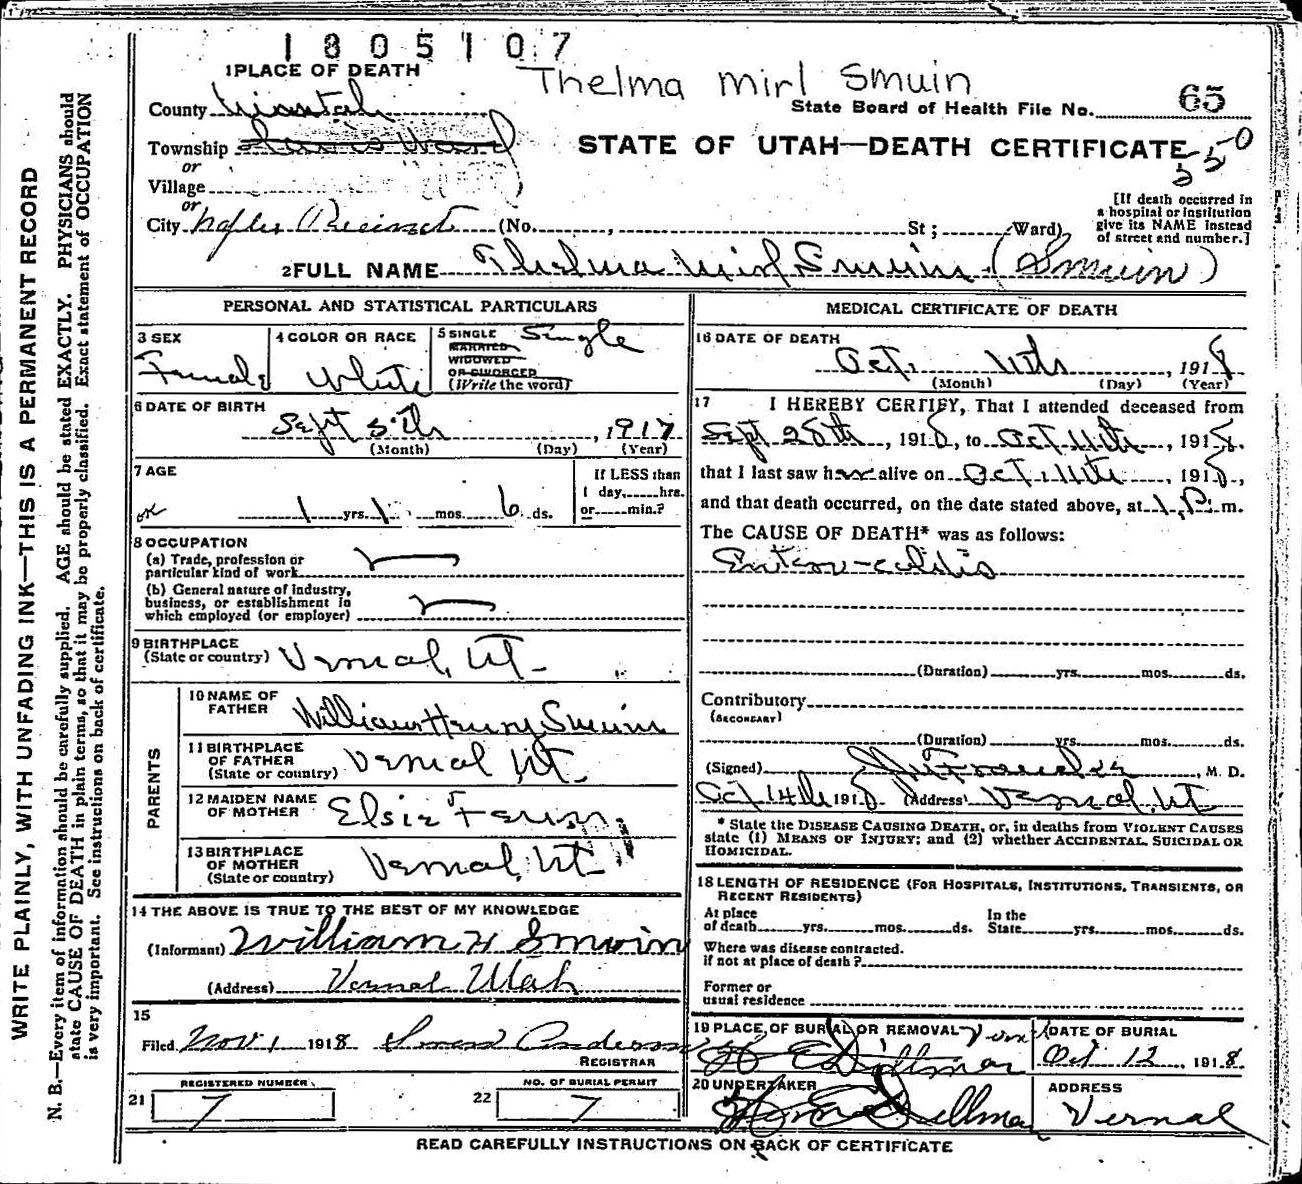 1805107
1 PLACE OF DEATH
Thelma Mirl Smuin
County Uintah
State Board of Health File No. 65
Township
STATE OF UTAH—DEATH CERTIFICATE
550
or
Village
or
City Naples Precinct (No. , St ; Ward)
[If death occurred in
a hospital or institution
give its NAME instead
of street and number.]
2 FULL NAME Thelma Mirl Smuin (Smuin)
PERSONAL AND STATISTICAL PARTICULARS
3 SEX
Female
4 COLOR OR RACE
White
5 SINGLE Single
MARRIED
WIDOWED
OR DIVORCED
(Write the word)
6 DATE OF BIRTH
Sept 5th, 1917
(Month) (Day) (Year)
7 AGE
ok 1 yrs. 1 mos. 6 ds.
If LESS than
1 day, hrs.
or min.?
8 OCCUPATION
(a) Trade, profession or
particular kind of work
(b) General nature of industry,
business, or establishment in
which employed (or employer)
9 BIRTHPLACE
(State or country) Vernal, Ut.
PARENTS
10 NAME OF
FATHER William Henry Smuin
11 BIRTHPLACE
OF FATHER
(State or country) Vernal, Ut.
12 MAIDEN NAME
OF MOTHER Elsie
13 BIRTHPLACE
OF MOTHER
(State or country) Vernal, Ut.
14 THE ABOVE IS TRUE TO THE BEST OF MY KNOWLEDGE
(Informant) William H Smuin
(Address) Vernal Utah
15
Filed Nov 1 1918
REGISTRAR
REGISTERED NUMBER
21 7
NO. OF BURIAL PERMIT
22 7
MEDICAL CERTIFICATE OF DEATH
16 DATE OF DEATH
Oct. 11th, 1918
(Month) (Day) (Year)
17 I HEREBY CERTIFY, That I attended deceased from
Sept 28th, 1918, to Oct 11th, 1918.
that I last saw her alive on Oct. 11th, 1918.,
and that death occurred, on the date stated above, at 1 P. m.
The CAUSE OF DEATH* was as follows:
Entero-colitis
(Duration) yrs. mos. ds.
Contributory
(SECONDARY)
(Duration) yrs. mos. ds.
(Signed) , M. D.
Oct 14th 1918 (Address) Vernal, Ut
* State the DISEASE CAUSING DEATH, or, in deaths from VIOLENT CAUSES
state (1) MEANS OF INJURY; and (2) whether ACCIDENTAL, SUICIDAL OR
HOMICIDAL.
18 LENGTH OF RESIDENCE (FOR HOSPITALS, INSTITUTIONS, TRANSIENTS, OR
RECENT RESIDENTS)
At place
of death yrs. mos. ds.
In the
State yrs. mos. ds.
Where was disease contracted.
if not at place of death ?
Former or
usual residence
19 PLACE OF BURIAL OR REMOVAL Vernal
DATE OF BURIAL
Oct 12, 1918
20 UNDERTAKER
ADDRESS
Vernal
READ CAREFULLY INSTRUCTIONS ON BACK OF CERTIFICATE
WRITE PLAINLY, WITH UNFADING INK—THIS IS A PERMANENT RECORD
N. B.—Every item of information should be carefully supplied. AGE should be stated EXACTLY. PHYSICIANS should
state CAUSE OF DEATH in plain terms, so that it may be properly classified. Exact statement of OCCUPATION
is very important. See instructions on back of certificate.